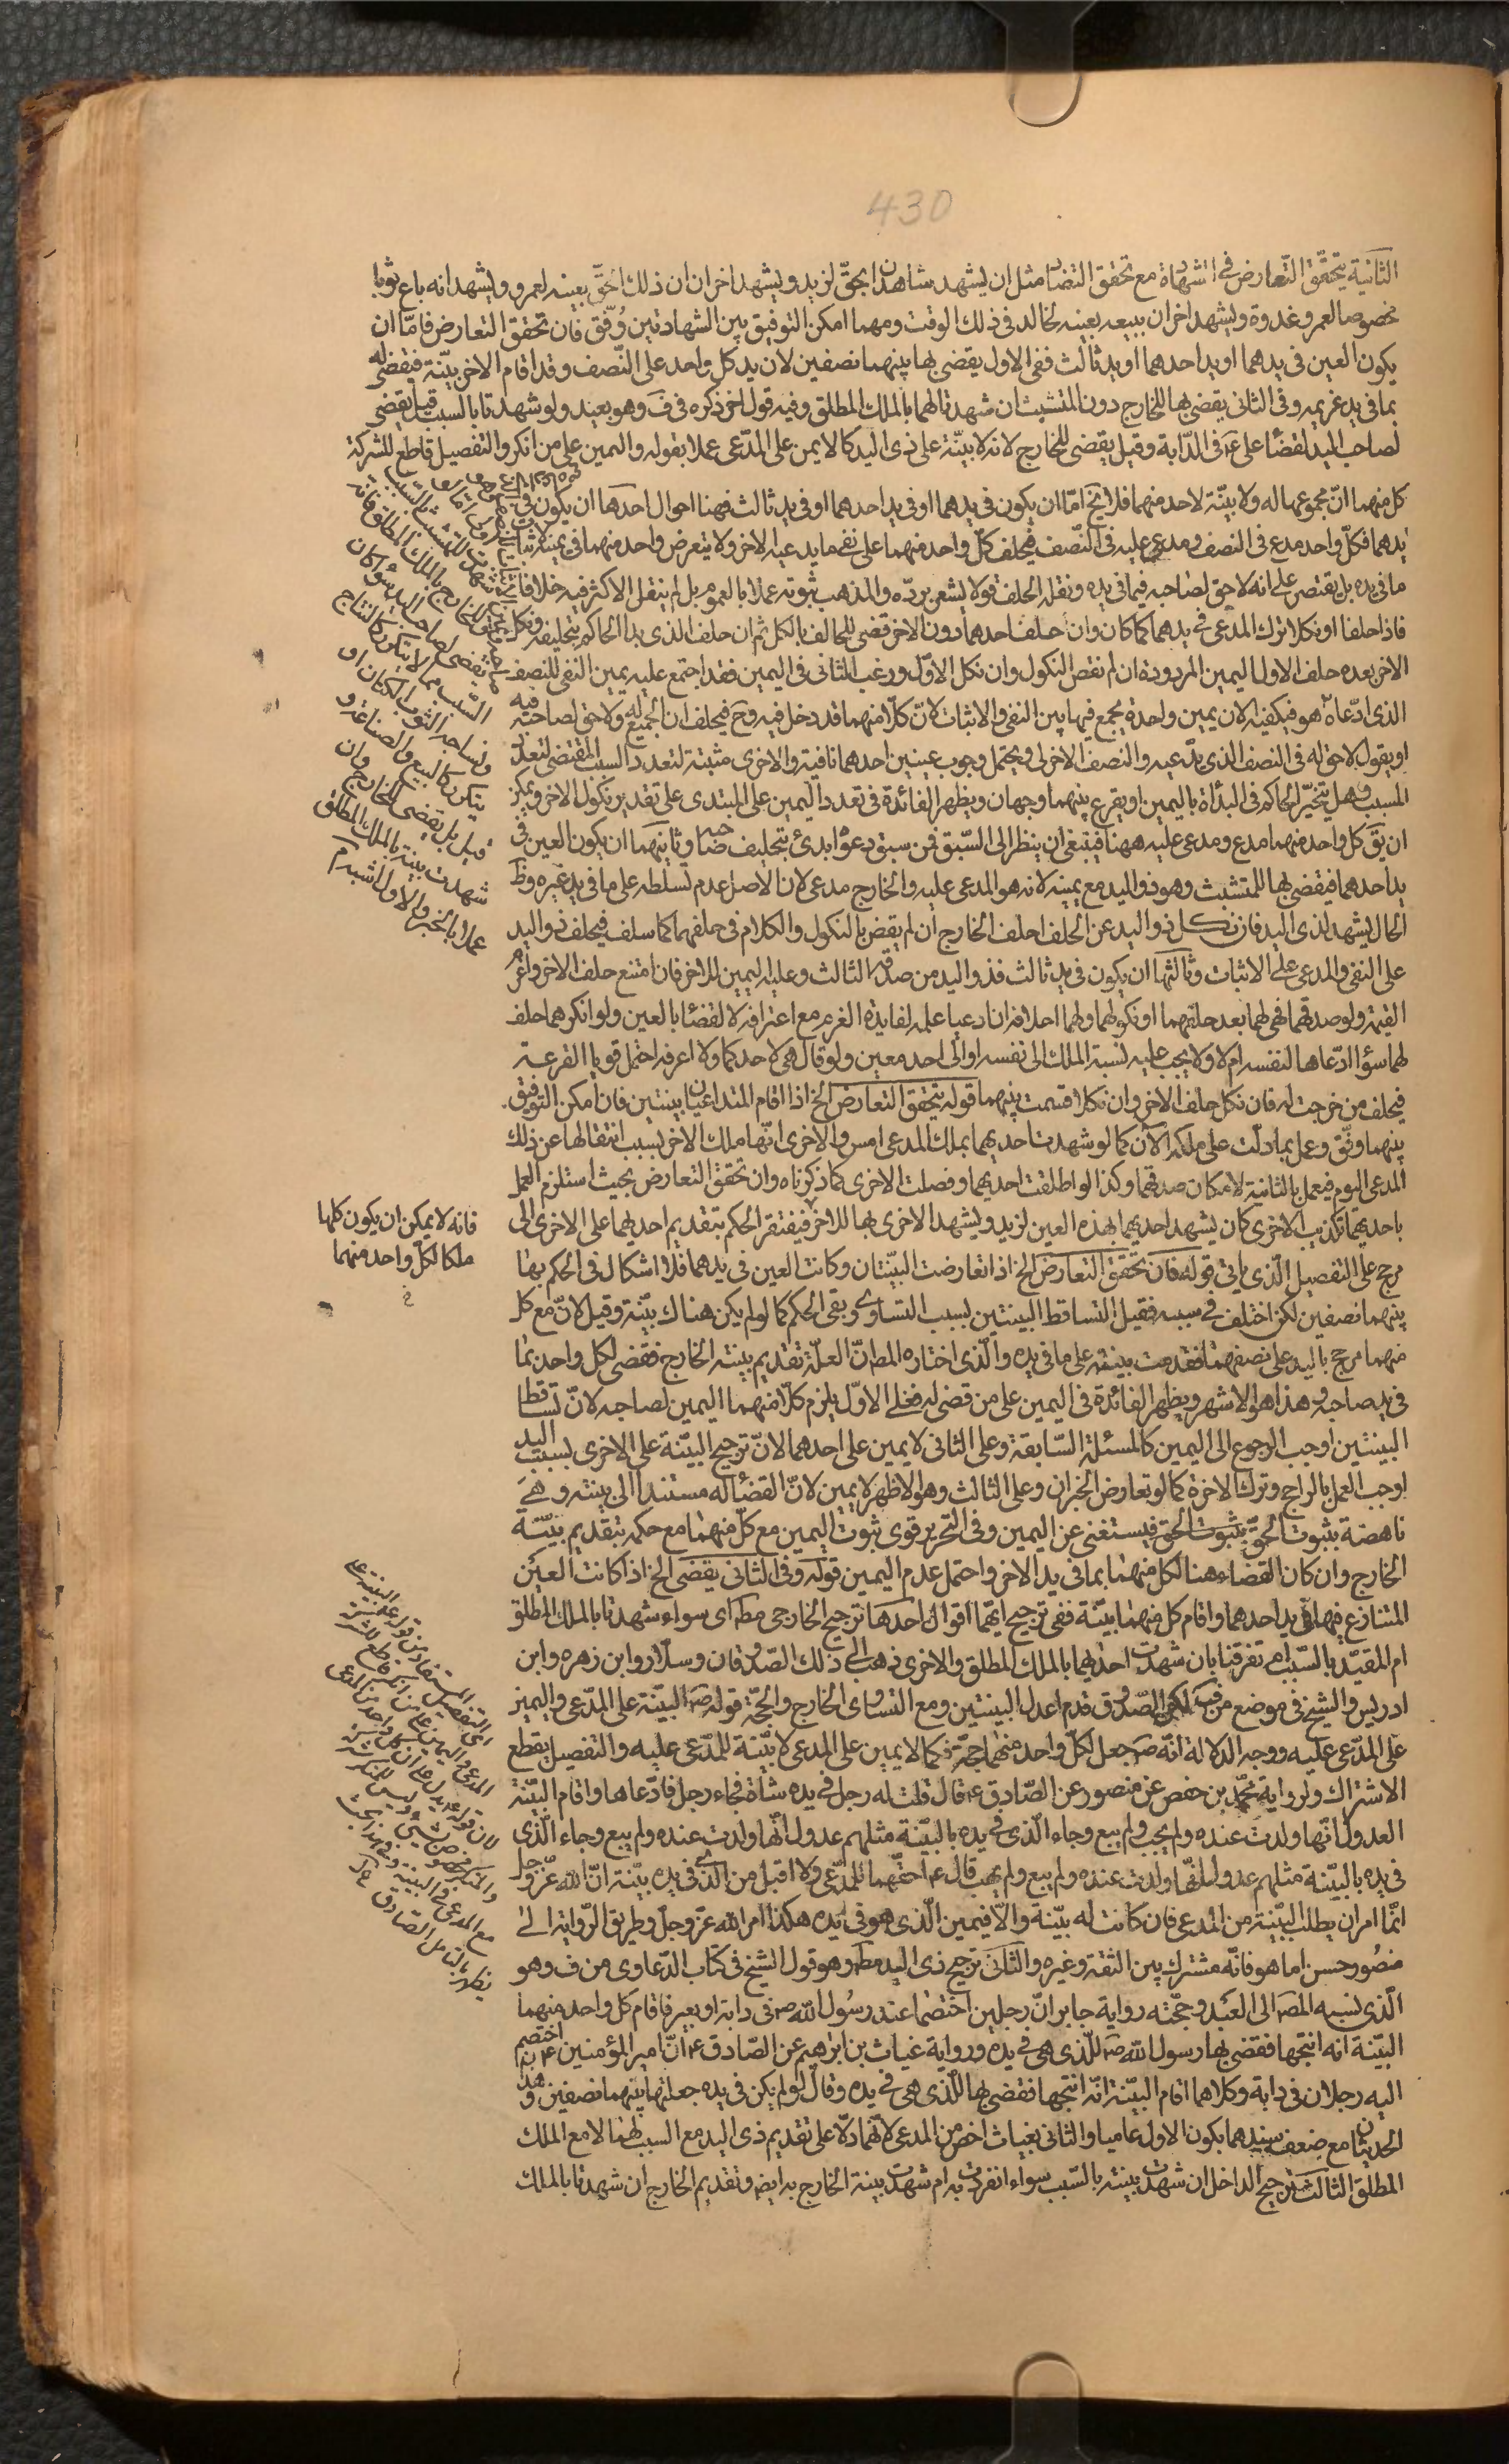 430
الثانية يتحقّق التّعارض في الشهادة مع تحقق التضاد مثل ان يشهد شاهدان بحقّ لزيد و يشهد اخران ان ذلك الحقّ بعينه لعمرو و يشهد انه باع ثوبا
مخصوصا لعمرو غدوة و يشهد اخران ببيعه بعينه لخالد في ذلك الوقت و مهما امكن التوفيق بين الشهادتين وُفّق فان تحقق التعارض فامّا ان
يكون العين في يدهما او يد احدهما او يد ثالث ففي الاول يقضى بها بينهما نصفين لان يد كل واحد على النّصف و قد اقام الاخر بيّنة فيقضى له
بما في يد غريمه و في الثاني يقضى بها للخارج دون المتشبث ان شهدتا لهما بالملك المطلق و فيه قول اخر ذكره في ف و هو بعيد و لو شهدتا بالسبب قيل يقضى
لصاحب اليد لقضاء على ع في الدّابة و قيل يقضى للخارج لانه لا بيّنة على ذي اليد كما لا يمين على المدّعى عملا بقوله و اليمين على من انكر و التفصيل قاطع للشركة
كل منهما انّ مجموعها له و لا بيّنة لاحد منهما فلا يخ امّا ان يكون في يدهما او في يد احدهما او في يد ثالث فهنا احوال احدها ان يكون في
يدهما فكلّ واحد مدع في النصف و مدعى عليه في النّصف فيحلف كلّ واحد منهما على نفي ما يدعيه الاخر و لا يتعرض واحد منهما في يمينه لاثبات
ما في يده بل يقتصر على انه لا حق لصاحبه فيما في يده و نقل الحلف قولا يشعر بردّه و المذهب ثبوته عملا بالعموم بل لم ينقل الاكثر فيه خلافا
فاذا حلفا او نكلا ترك المدّعى في يدهما كما كان و ان حلف احدهما دون الاخر قضى للحالف بالكل ثم ان حلف الذي بدا الحاكم بتحليفه و نكل
الاخر بعده حلف الاول اليمين المردودة ان لم نقض بالنكول و ان نكل الاوّل و رغب الثاني في اليمين فقد اجتمع عليه يمين النفي للنصف
الذي ادّعاه هو فيكفيه الان يمين واحدة يجمع فيها بين النفي و الاثبات لانّ كلا منهما قد دخل فيه و ح فيحلف ان الجميع له و لا حق لصاحبه فيه
او يقول لا حق له في النصف الذي يدّعيه و النصف الاخر لي و يحتمل وجوب يمينين احدهما نافية و الاخرى مثبتة لتعدد السبب المقتضى لتعدد
المسبب و هل يتخيّر الحاكم في البدأة باليمين او يقرع بينهما وجهان و يظهر الفائدة في تعدد اليمين على المبتدى على تقدير نكول الاخر و يمكن
ان يق كل واحد منهما مدع و مدعى عليه ههنا فينبغي ان ينظر الى السّبق فمن سبق دعواه بدئ بتحليف صاحبه و ثانيهما ان يكون العين في
يد احدهما فيقضى بها للمتشبث و هو ذو اليد مع يمينه لانه هو المدعى عليه و الخارج مدعى لان الاصل عدم تسلطه على ما في يد غيره و ظ
الحال يشهد لذي اليد فان نكل ذو اليد عن الحلف احلف الخارج ان لم يقض بالنكول و الكلام في حلفهما كما سلف فيحلف ذو اليد
على النفي و المدعى على الاثبات و ثالثها ان يكون في يد ثالث فذو اليد من صدّقه الثالث و عليه اليمين للاخر فان امتنع حلف الاخر و اغرم
القيمة و لو صدقهما فهي لهما بعد حلفهما او نكولهما و لهما احلافه ان ادعيا علمه لفايدة الغرم مع اعترافه لا القضاء بالعين و لو انكرهما حلف
لهما سواء ادّعاها لنفسه ام لا و لا يجب عليه نسبة الملك الى نفسه او الى احد معين و لو قال هي لاحدكما و لا اعرفه احتمل قويا القرعة
فيحلف من خرجت له فان نكل حلف الاخر و ان نكلا قسمت بينهما قوله يتحقق التعارض الخ اذا اقام المتداعيان بينتين فان امكن التوفيق
بينهما وفّق و عمل بما دلّت على ملكه الآن كما لو شهدت احديهما بملك المدعى امس و الاخرى انّها ملك الاخر بسبب انتقالها عن ذلك
المدعى اليوم فيعمل بالثانية لامكان صدقهما و كذا لو اطلقت احديهما و فصلت الاخرى كما ذكرناه و ان تحقق التعارض بحيث استلزم العمل
باحديهما تكذيب الاخرى كان يشهد احديهما بهذه العين لزيد و يشهد الاخرى بها للاخر فيفتقر الحكم بتقديم احديهما على الاخرى الى
مرجح على التفصيل الّذي ياتي قوله فان تحقق التعارض الخ اذا تعارضت البيّنتان و كانت العين في يدهما فلا اشكال في الحكم بها
بينهما نصفين لكن اختلف في سببه فقيل التساقط البينتين بسبب التساوي و بقى الحكم كما لو لم يكن هناك بيّنة و قيل لانّ مع كل
منهما مرجح باليد على نصفهما فقدمت بينته على ما في يده و الّذي اختاره المص انّ العلّة تقديم بينة الخارج فقضى لكل واحد بما
في يد صاحبه و هذا هو الاشهر و يظهر الفائدة في اليمين على من قضى له فعلى الاوّل يلزم كلّا منهما اليمين لصاحبه لانّ تساقط
البينتين اوجب الرجوع الى اليمين كالمسئلة السّابقة و على الثاني لا يمين على احدهما لانّ ترجيح البيّنة على الاخرى بسبب اليد
اوجب العمل بالراجح و ترك الاخرة كما لو تعارض الخبران و على الثالث و هو الاظهر لا يمين لانّ القضاء له مستندا الى بينته و هي
ناهضة بثبوت الحقّ بثبوت الحق فيستغنى عن اليمين و في التحرير قوى ثبوت اليمين مع كلّ منهما مع حكمه بتقديم بيّنة
الخارج و ان كان القضاء هنا لكل منهما بما في يد الاخر و احتمل عدم اليمين قوله و في الثاني يقضى الخ اذا كانت العين
المتنازع فيها في يد احدهما و اقام كل منهما بيّنة ففي ترجيح ايّهما اقوال احدها ترجيح الخارجى مطه اى سواء شهدتا بالملك المطلق
ام المقيّد بالسّبب ام تفرقتا بان شهدت احديهما بالملك المطلق و الاخرى ذهب الى ذلك الصّدوقان و سلّار و ابن زهره و ابن
ادريس و الشيخ في موضع من ف لكن الصّدوق قدم اعدل البينتين و مع التساوى الخارج و الحجّة قوله ص البيّنة على المدّعى و اليمين
على المدّعى عليه و وجه الدلالة انّه ص جعل لكلّ واحد منهما حجّة فكما لا يمين على المدعى لا بيّنة للمدّعى عليه و التفصيل يقطع
الاشتراك و لرواية محمّد بن حفص عن منصور عن الصّادق ع قال قلت له رجل في يده شاة فجاء رجل فادّعاها و اقام البيّنة
العدول انّها ولدت عنده و لم يجب و لم يبع و جاء الّذي في يده بالبيّنة مثلهم عدول انّها ولدت عنده و لم يبع و جاء الّذي
في يده بالبيّنة مثلهم عدول انّها ولدت عنده و لم يبع و لم يهب قال ع احقّهما للمدّعى و لا اقبل من الّذي في يده بيّنة انّ الله عزّ و جل
انّما امر ان يطلب البيّنة من المدعى فان كانت له بيّنة و الّا فيمين الّذي هو في يده هكذا امر الله عزّ و جلّ و طريق الرّواية الى
منصُور حسن اما هو فانّه مشترك بين الثقة و غيره و الثانى ترجيح ذى اليد مطه و هو قول الشيخ في كتاب الدّعاوى من ف و هو
الّذي نسبه المص الى العبد و حجّته رواية جابر انّ رجلين اختصما عند رسُول الله ص في دابة او بعير فاقام كل واحد منهما
البيّنة انه انتجها فقضى بها رسول الله ص للّذي هى في يده و رواية غياث بن ابراهيم عن الصّادق ع انّ امير المؤمنين ع اختصم
اليه رجلان في دابة و كلاهما اقام البيّنة انّه انتجها فقضى بها للّذي هى في يده و قال لو لم يكن في يده جعلتها بينهما نصفين و هذا
الحديثان مع ضعف سندهما بكون الاول عاميا و الثاني بغياث اخص من المدعى لانّهما دلّا على تقديم ذى اليد مع السبب لهما لا مع الملك
المطلق الثالث ترجيح الداخل ان شهدت بينته بالسّبب سواء انفردت به ام شهدت بينة الخارج به ايضه و تقديم الخارج ان شهدتا بالملك
يقضى لصاحب اليد سواء كان
السّبب مما لا يتكرر كالنتاج
و نساجة الثوب الكتان او
يتكرر كالبيع و الصناعة و
قيل بل يقضى للخارج و ان
شهدت بينته بالملك المطلق
عملا بالخبر و الاول اشبه م
فانه لا يمكن ان يكون كلها
ملكا لكلّ واحد منهما